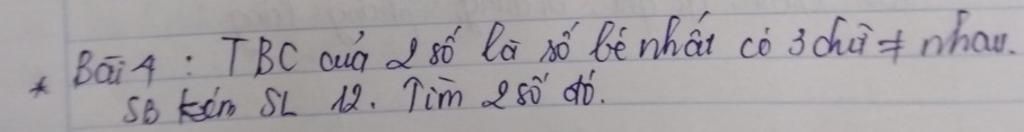 * Bài 4 : TBC của 2 số là số bé nhất có 3 chữ ≠ nhau.
SB kém SL 12. Tìm 2 số đó.